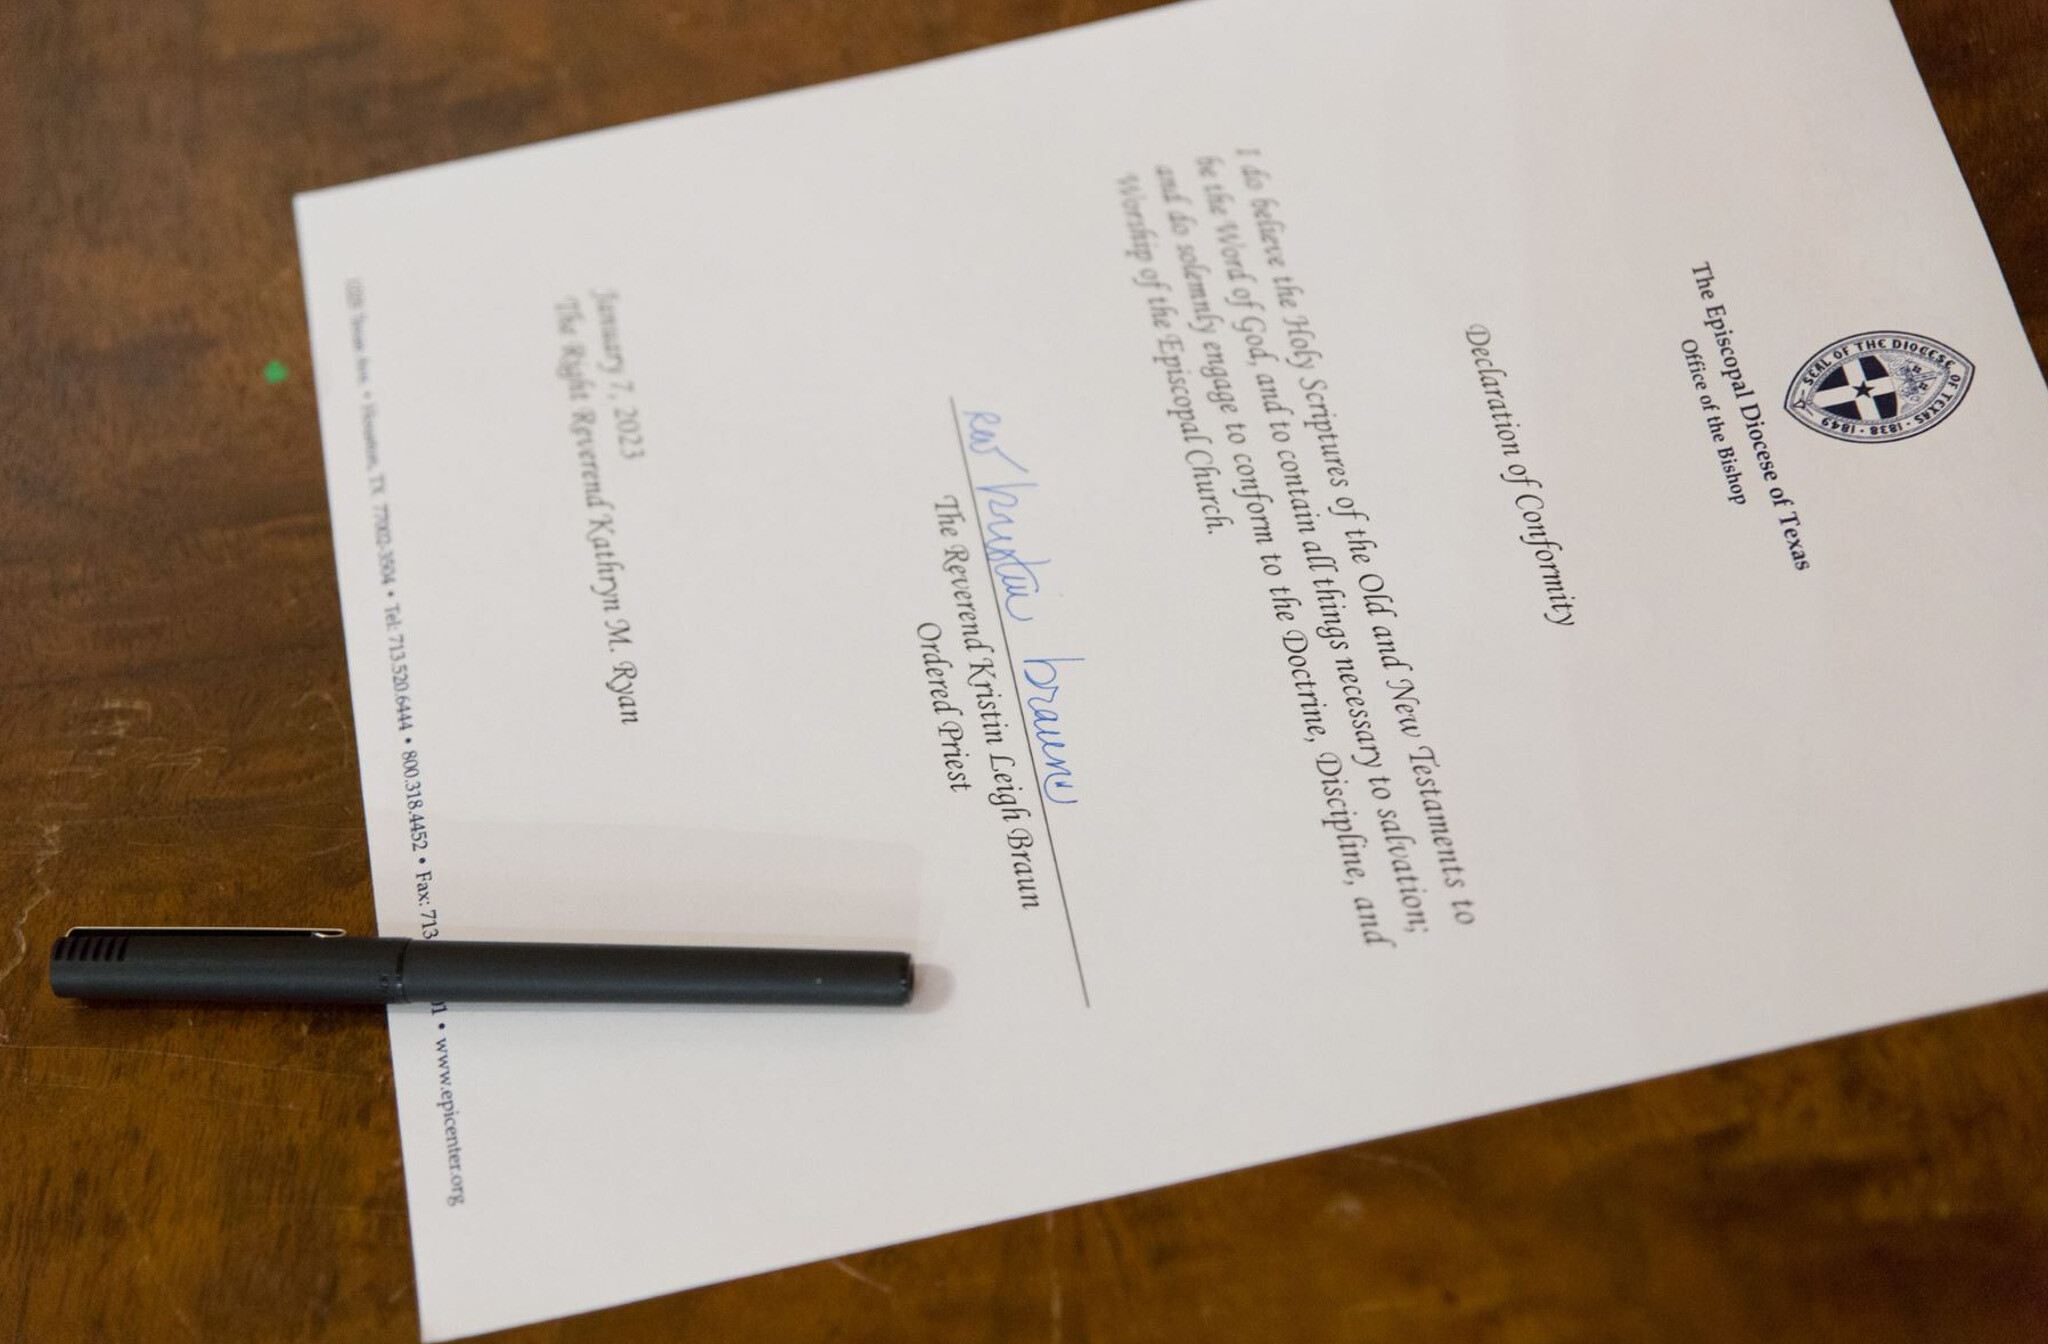 SEAL OF THE DIOCESE OF TEXAS · 1838 · 1849
The Episcopal Diocese of Texas
Office of the Bishop
Declaration of Conformity
I do believe the Holy Scriptures of the Old and New Testaments to
be the Word of God, and to contain all things necessary to salvation;
and do solemnly engage to conform to the Doctrine, Discipline, and
Worship of the Episcopal Church.
Rev Kristin Braun
The Reverend Kristin Leigh Braun
Ordered Priest
January 7, 2023
The Right Reverend Kathryn M. Ryan
Texas Ave. • Houston, TX 77002-3504 • Tel: 713.520.6444 • 800.318.4452 • Fax: 713 01 • www.epicenter.org